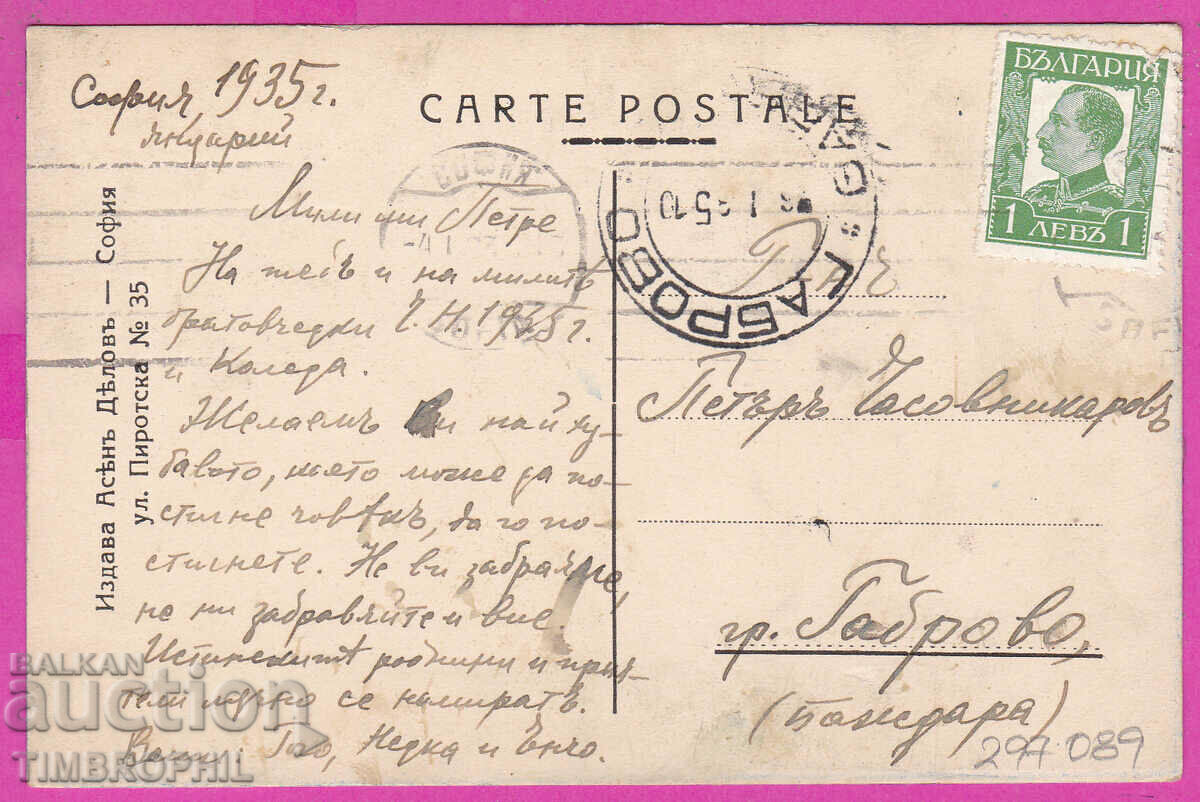 София, 1935 г.
януарий
CARTE POSTALE
БЪЛГАРИЯ
1 ЛЕВЪ 1
СОФИЯ
ГАБРОВО
Издава Асѣнъ Дѣловъ — София
ул. Пиротска № 35
Мили ми Петре
На тебъ и на милитѣ
братовчедки Ч.Н. 1935 г.
и Коледа.
Желаемъ Ви най ху-
бавото, което може да по-
стигне човѣкъ, да го по-
стигнете. Не ви забравяме,
не ни забравяйте и вие.
Истинскитѣ роднини и прия-
тели мѫчно се намиратъ.
Ваши: Гого, Недка и Енчо.
Петъръ Часовникаровъ
гр. Габрово,
(пандара)
297089
BALKAN
auction
TIMBROPHIL